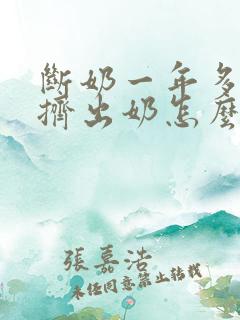 斷奶一年多
擠出奶怎麼
張嘉浩
未经同意禁止转载